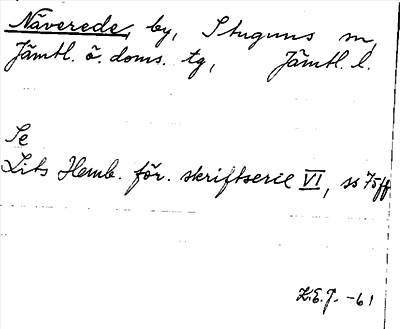 Näverede, by, Stuguns sn,
Jämtl. ö. doms. tg, Jämtl. l.
Se
Lits Hemb. för. skriftserie VI, ss 75 ff
K.E.J. -61